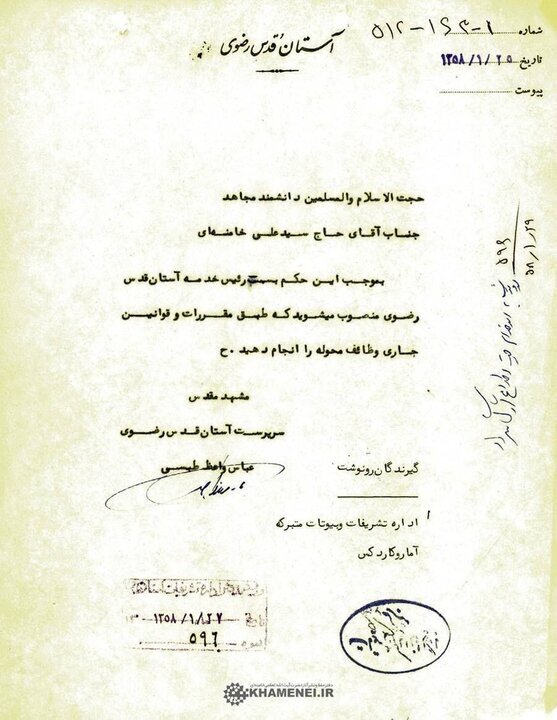 آستان قدس رضوی
شماره ۵۱۲-۱۶۳-۱
تاریخ ۱۳۵۸/۱/۲۵
پیوست
حجت الاسلام والمسلمین دانشمند مجاهد
جناب آقای حاج سیدعلی خامنه‌ای
بموجب این حکم بسمت رئیس خدمه آستان قدس
رضوی منصوب میشوید که طبق مقررات و قوانین
جاری وظائف محوله را انجام دهید. ح
مشهد مقدس
سرپرست آستان قدس رضوی
عباس واعظ طبسی
گیرندگان رونوشت
اداره تشریفات وبیوتات متبرکه
آماروکاردکس
۵۹۶
۵۸/۱/۲۹
اداره تشریفات آستان قدس
تاریخ ۱۳۵۸/۱/۲۷
۵۹۶
KHAMENEI.IR